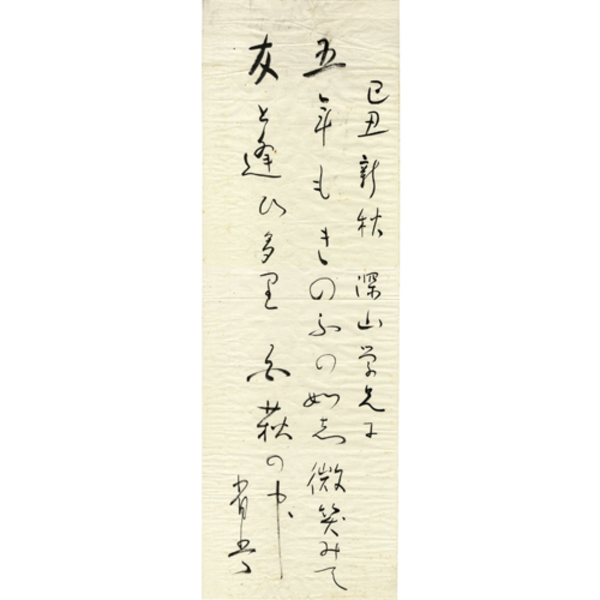 己丑新秋 深山学兄に
五年もきのふの如志微笑みて
友と逢ひ多里 白萩の中